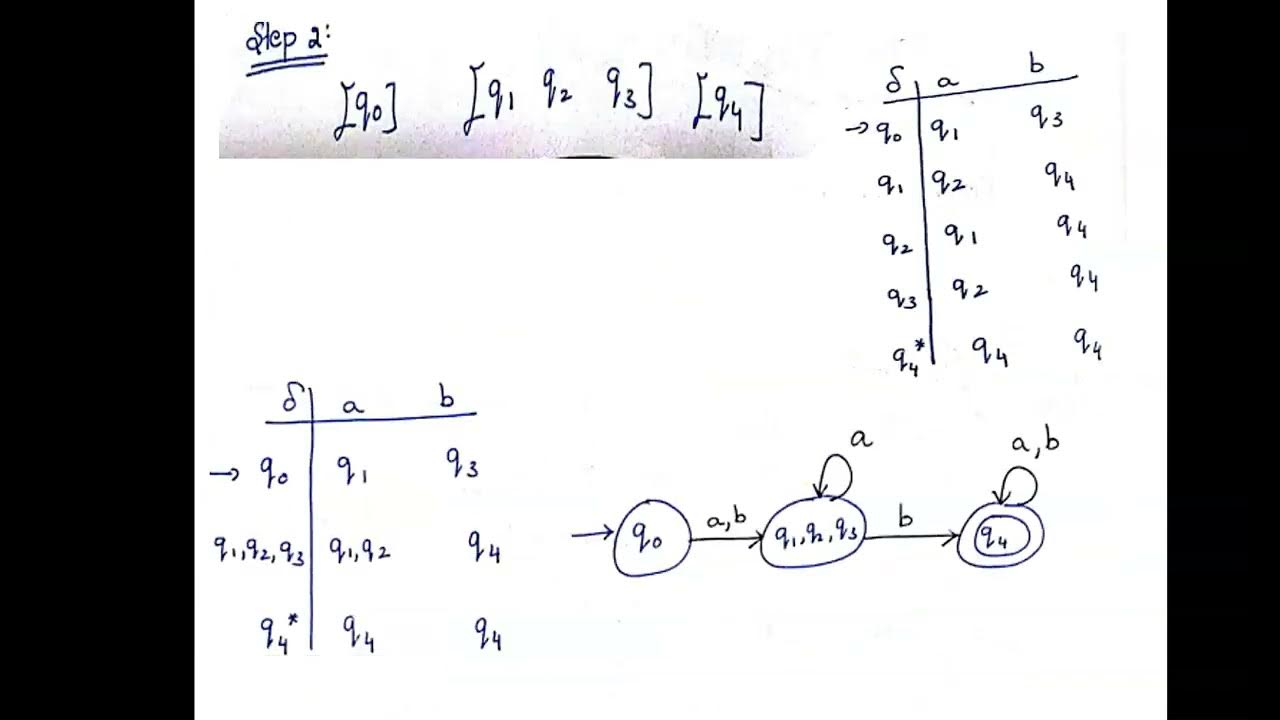 Step 2:
[q0] [q1 q2 q3] [q4]
δ a b
→ q0 q1 q3
q1 q2 q4
q2 q1 q4
q3 q2 q4
q4* q4 q4
δ a b
→ q0 q1 q3
q1,q2,q3 q1,q2 q4
q4* q4 q4
a
a,b
a,b
b
q0
q1,q2,q3
q4